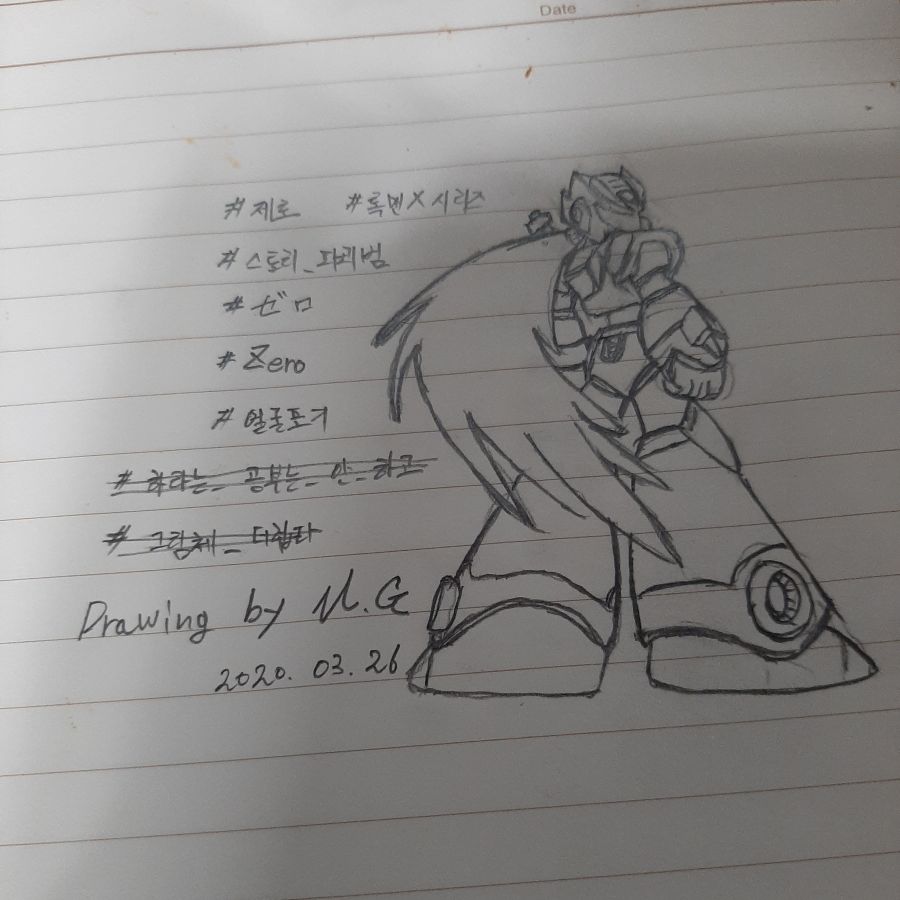 Date
#제로 #록맨X시리즈
#스토리_파괴범
#ゼロ
#Zero
#얼굴포기
#하라는_공부는_안_하고
#그림체_더럽다
Drawing by N.G
2020. 03. 26